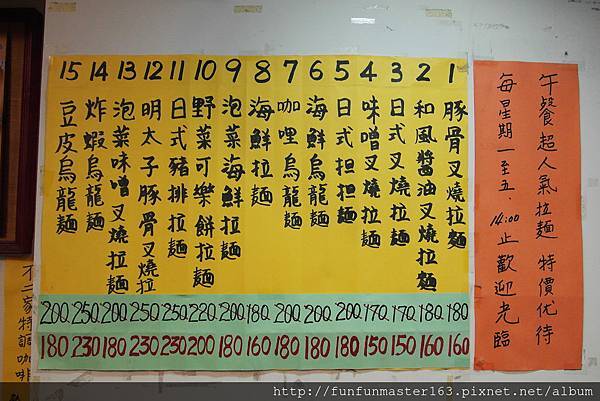 午餐超人氣拉麵 特價优待
每星期一至五．14:00止歡迎光臨
1 豚骨叉燒拉麵 180 160
2 和風醬油叉燒拉麵 180. 160
3 日式叉燒拉麵 170. 150
4 味噌叉燒拉麵 170. 150
5 日式担担麵 200. 180
6 海鮮烏龍麵 200. 180
7 咖哩烏龍麵 200. 180
8 海鮮拉麵 180. 160
9 泡菜海鮮拉麵 200. 180
10 野菜可樂餅拉麵 220. 200
11 日式豬排拉麵 250. 230
12 明太子豚骨叉燒拉 250. 230
13 泡菜味噌叉燒拉麵 200. 180
14 炸蝦烏龍麵 250. 230
15 豆皮烏龍麵 200. 180
不二家特調咖啡
http://funfunmaster163.pixnet.net/album